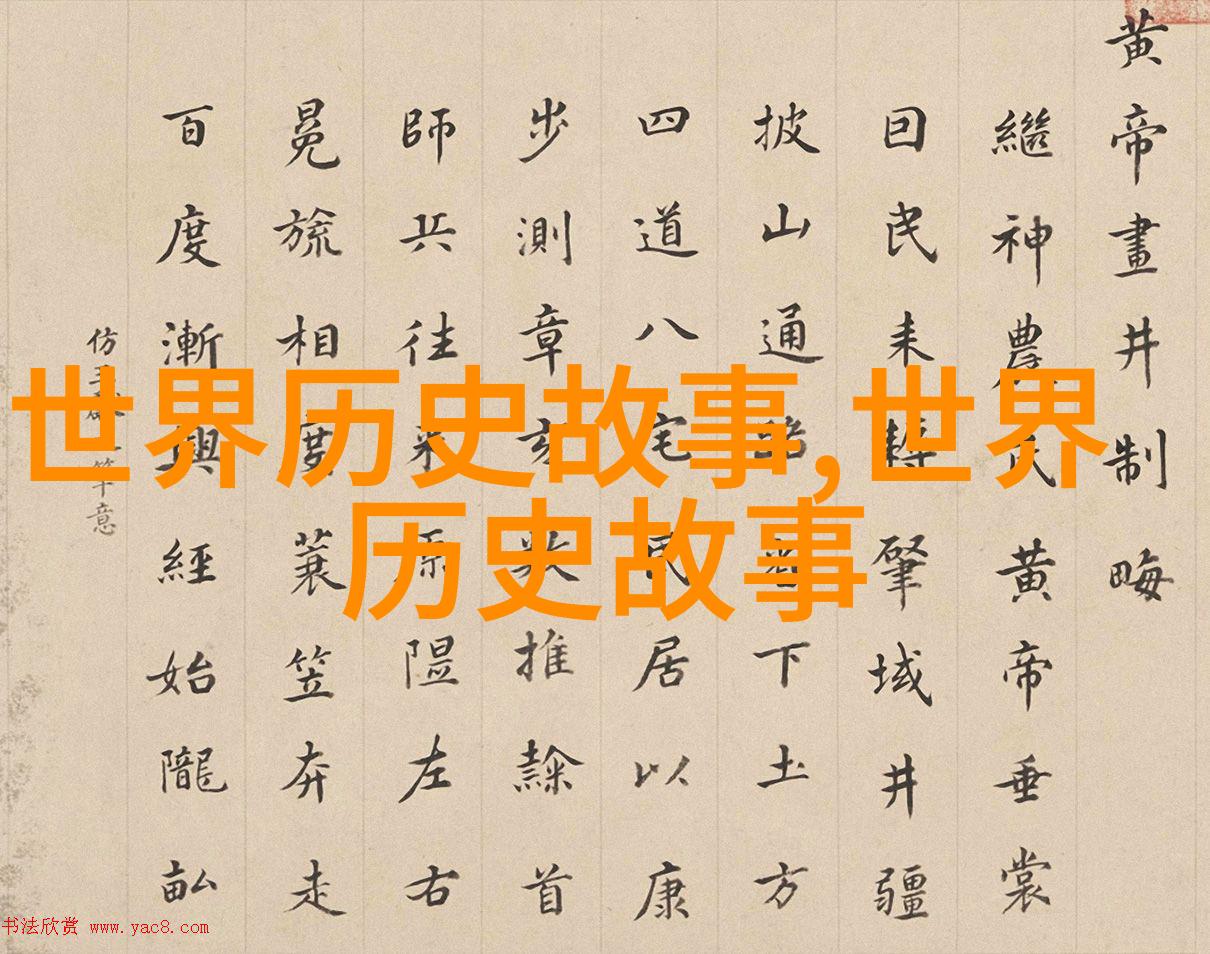 黄帝畫井制畮
繼神農氏黄帝垂裳
囙民耒肇域井疆
披山通下土方
四道八宅民居以康
步測章亥數推隸首
師兵往來原隰左右
冕旒相蓑笠奔走
百度漸興經始隴畝
仿意
世界历史故事,世界
历史故事
书法欣赏 www.yac8.com